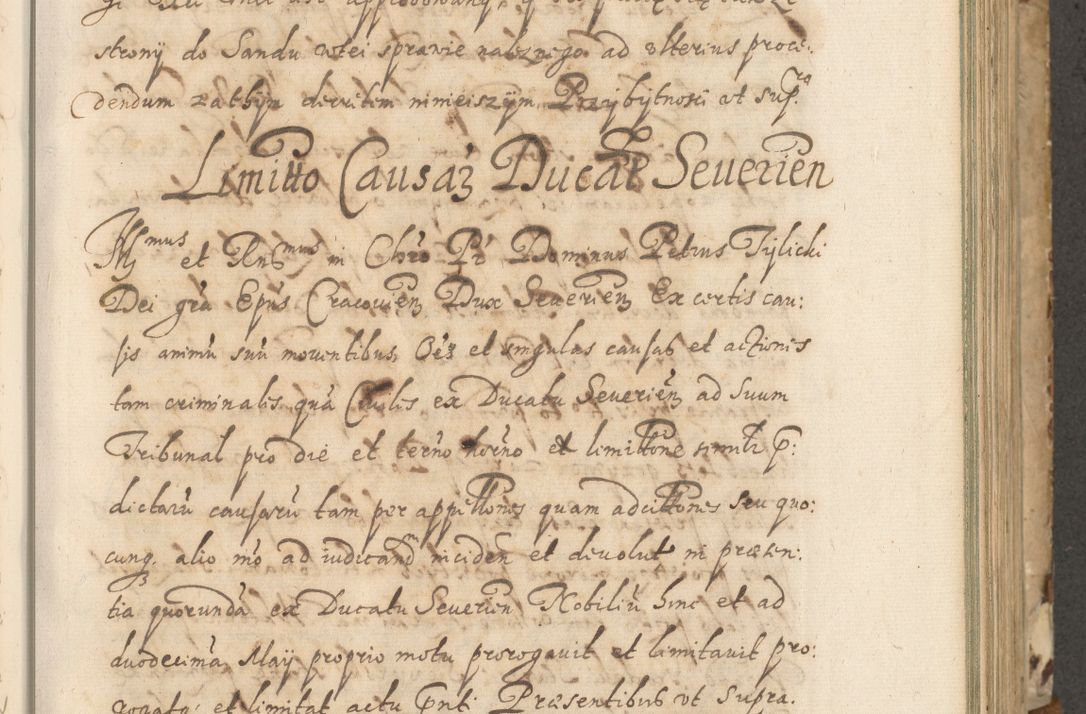 strony do Sandu wtei sprawie należnego ad vlterius proce:
dendum zatbym decretem ninieiszÿm Przÿbÿtności vt sup:ra
Limitto Causaȝ Ducat Seuerien
Illmus et Rndsmus in Chro Pr Dominus Petrus Tÿlicki
Dei gra Epus Cracouien Dux Seuerien Ex certis cau:
sis animū suū mouentibus, Oes et singulas causas et actiones
tam criminales quā Ciuiles ex Ducatu Seuerien ad Suum
Tribunal pro die et termo horno et limittone simili p:
dictarū causarū tam per appellones quam adcittones seu quo:
cunqȝ alio mō ad iudicand inciden et deuolut in præsen:
tia quorundā ex Ducatu Seuerien Nobiliū hinc et ad
duodecimā Maÿ proprio motu prorogauit et limitauit pro:
rogatqȝ et limitat actu pnti Præsentibus vt supra.